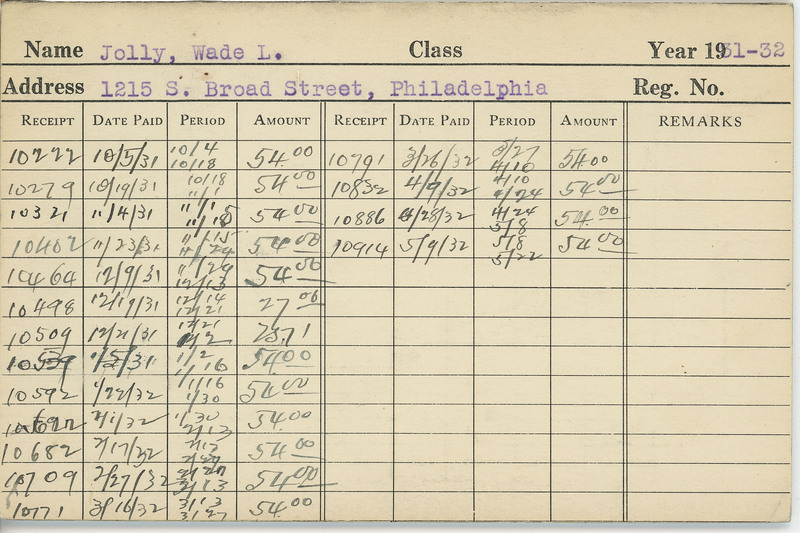 Name Jolly, Wade L. Class Year 1931-32
Address 1215 S. Broad Street, Philadelphia Reg. No.
RECEIPT DATE PAID PERIOD AMOUNT RECEIPT DATE PAID PERIOD AMOUNT REMARKS
10222 10/5/31 10/4 10/18 54.00 10791 3/26/32 3/27 4/10 54 00
10279 10/19/31 10/18 11/1 54 00 10832 4/9/32 4/10 4/24 54 00
10321 11/4/31 11/1 11/15 54.00 10886 4/28/32 4/24 5/8 54.00
10402 11/23/31 11/15 11/29 54 00 10914 5/9/32 5/8 5/22 54 00
10464 12/9/31 11/29 12/13 54 00
10498 12/17/31 12/14 12/21 27 00
10509 12/21/31 12/21 1/2 25.71
1/5/31 1/2 1/16 54 00
10592 1/22/32 1/16 1/30 54 00
2/1/32 1/30 2/13 54.00
10682 2/17/32 2/13 54 00
10709 2/27/32 2/27 3/13 54 00
10771 3/16/32 3/13 3/27 54.00